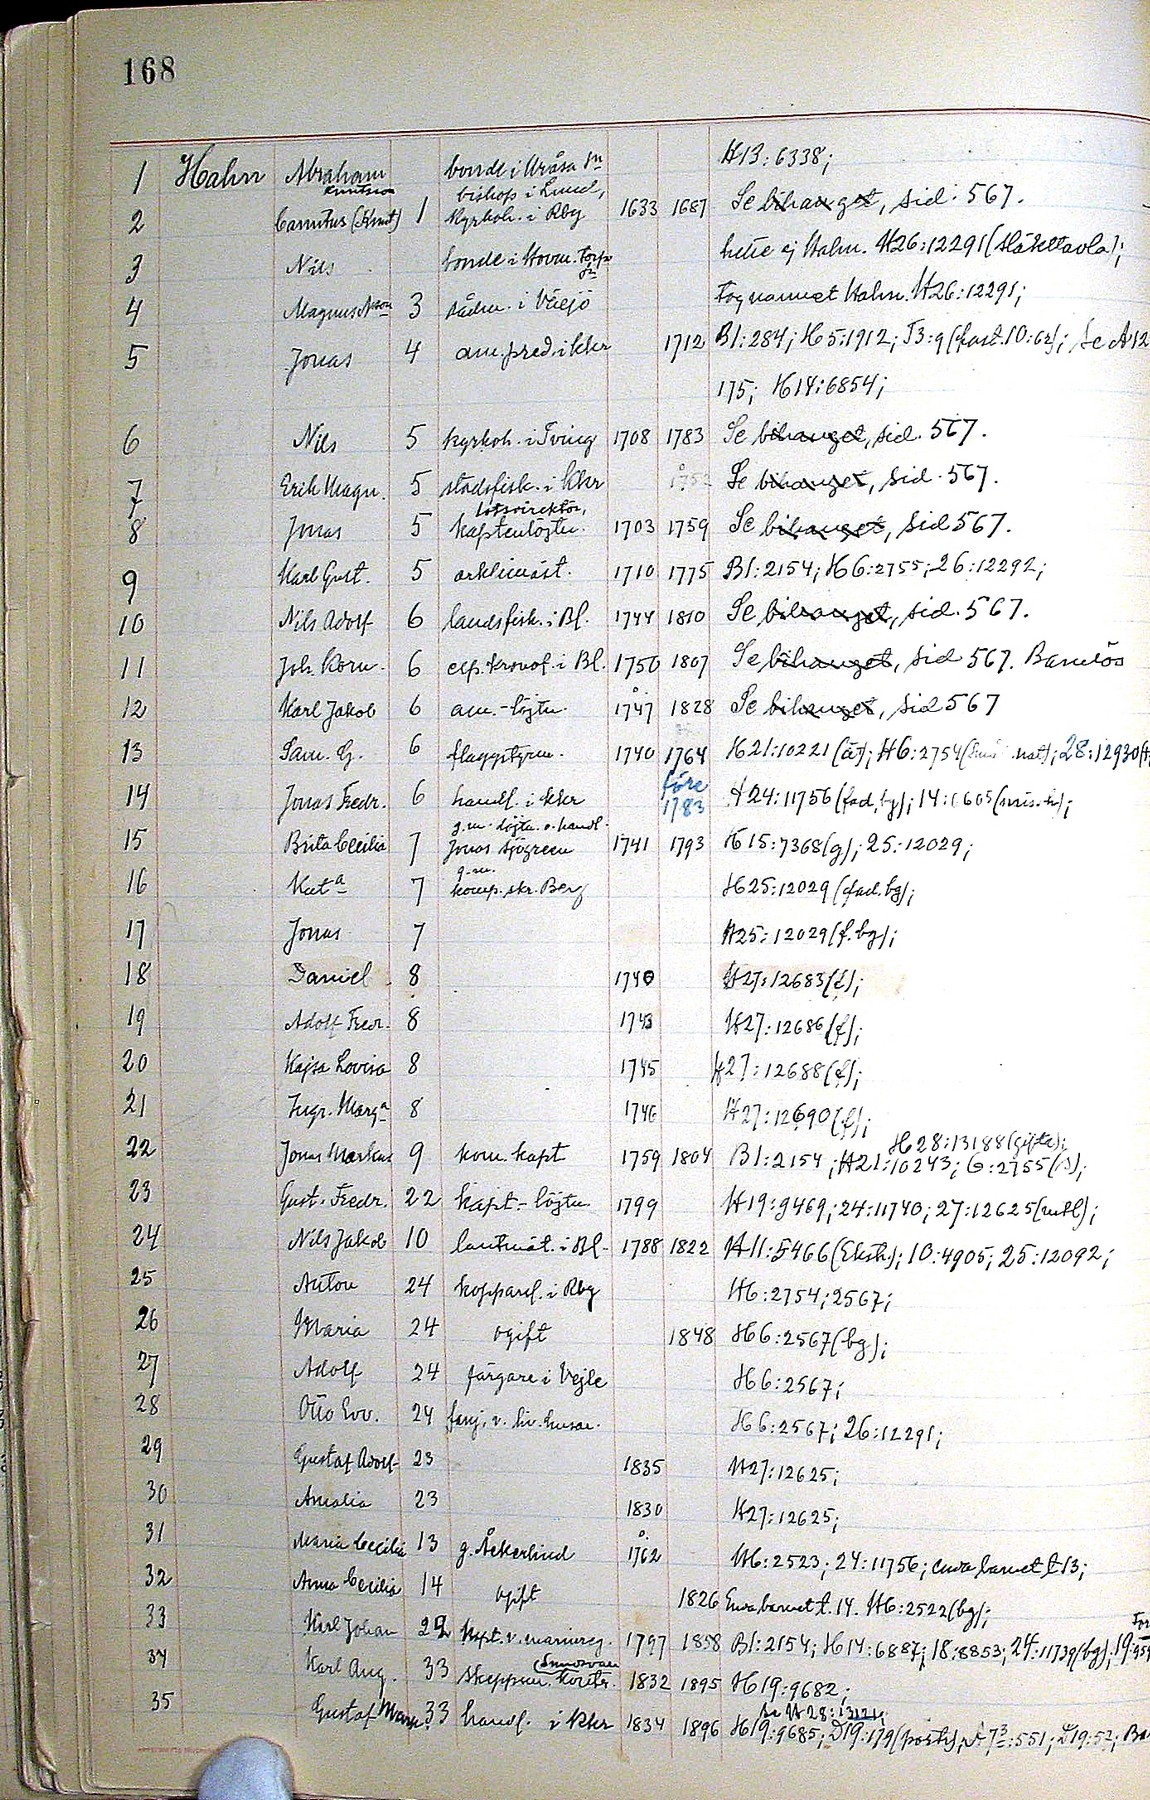 168
1 Hahn Abraham bonde i Uråsa sn H13:6338;
Knutsson biskop i Lund,
2 Canutus (Knut) 1 kyrkoh. i Rby 1633 1687 Se bihanget, sid. 567.
3 Nils bonde i Hovm.torps sn hette ej Hahn. H26:12291 (släkttavla);
4 Magnus Nsson 3 rådm. i Växjö tog namnet Hahn. H26:12291;
5 Jonas 4 am.pred. i Kkr 1712 Bl:284; H5:1912, J3:9 (fast.10:62); Se A12
175; H14:6854;
6 Nils 5 kyrkoh. i Tving 1708 1783 Se bihanget, sid. 567.
7 Erik Magn. 5 stadsfisk. i Kkr Se bihanget, sid. 567.
lotsdirektör,
8 Jonas 5 kaptenlöjtn. 1703 1759 Se bihanget, sid 567.
9 Karl Gust. 5 arklimäst. 1710 1775 Bl:2154; H6:2755; 26:12292;
10 Nils Adolf 6 landsfisk. i Bl. 1744 1810 Se bihanget, sid. 567.
11 Joh. Korn. 6 exp. kronof. i Bl. 1750 1807 Se bihanget, sid 567. Barnlös
12 Karl Jakob 6 am.-löjtn. 1747 1828 Se bihanget, sid 567
13 Sam. G. 6 flaggstyrm. 1740 1764 H21:10221 (åt); H6:2754 28:12930
14 Jonas Fredr. 6 handl. i Kkr före 1783 H24:11756 (fad.bg); 14:6605
g.m. löjtn. o. handl.
15 Brita Cecilia 7 Jonas Sjögreen 1741 1793 H15:7368 (g); 25:12029;
g.m.
16 Kata 7 komp.skr. Berg H25:12029 (fad.bg);
17 Jonas 7 H25:12029 (f.bg);
18 Daniel 8 1740 H27:12683 (f);
19 Adolf Fredr. 8 1743 H27:12686 (f);
20 Kajsa Lovisa 8 1745 H27:12688 (f);
21 Ingr. Marga 8 1746 H27:12690 (f);
H28:13188 (gifte);
22 Jonas Markus 9 kom.kapt 1759 1804 Bl:2154; H21:10243; 6:2755
23 Gust. Fredr. 22 kapt.-löjtn 1799 H19:9469; 24:11740; 27:12625 (utfl);
24 Nils Jakob 10 lantmät. i Bl. 1788 1822 H11:5466 (Eksh.); 10:4905; 25:12092;
25 Anton 24 kopparsl. i Rby H6:2754; 2567;
26 Maria 24 ogift 1848 H6:2567 (bg);
27 Adolf 24 färgare i Vejle H6:2567;
28 Otto Edv. 24 fanj. v. liv.husar. H6:2567; 26:12291;
29 Gustaf Adolf 23 1835 H27:12625;
30 Amalia 23 1830 H27:12625;
31 Maria Cecilia 13 g. Åkerlind 1762 H6:2523; 24:11756; enda barnet t 13;
32 Anna Cecilia 14 ogift 1826 Enda barnet t. 14. H6:2522 (bg);
33 Karl Johan 22 kapt. v. marinreg. 1797 1858 Bl:2154; H14:6887; 18:8853; 24:11739 (bg);
34 Karl Aug. 33 skeppsm. 1832 1895 H19:9682;
Se H28:13121;
35 Gustaf Magn 33 handl. i Kkr 1834 1896 H19:9685; D19:179 (porträ), 73:551; D19:52;